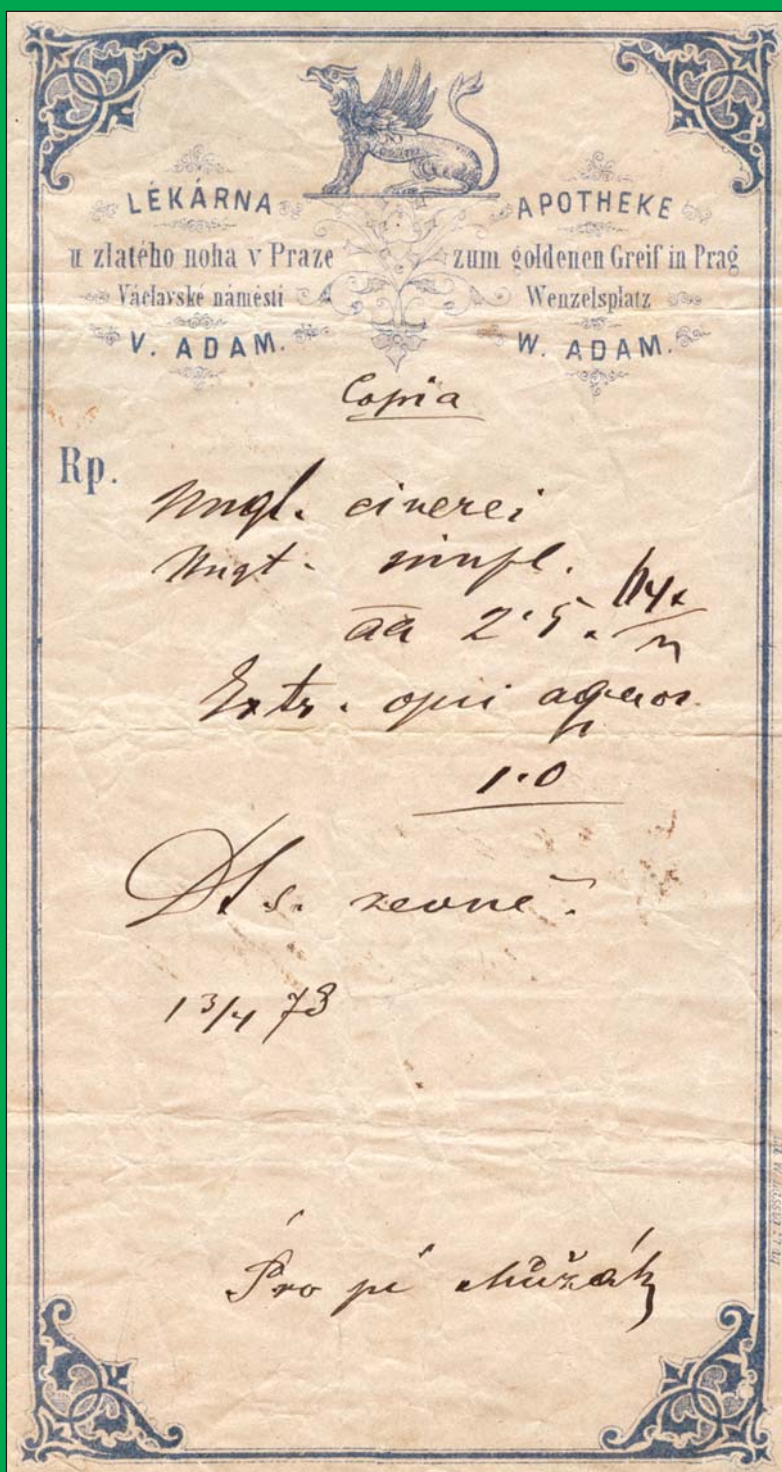 LÉKÁRNA
u zlatého noha v Praze
Václavské náměstí
V. ADAM.
APOTHEKE
zum goldenen Greif in Prag
Wenzelsplatz
W. ADAM.
Copia
Rp.
Ungt. cinerei
Ungt. simpl.
aa 2·5.
Extr. opii aquos
1·0
DS. zevně.
13/4 73
Pro pí Mužák